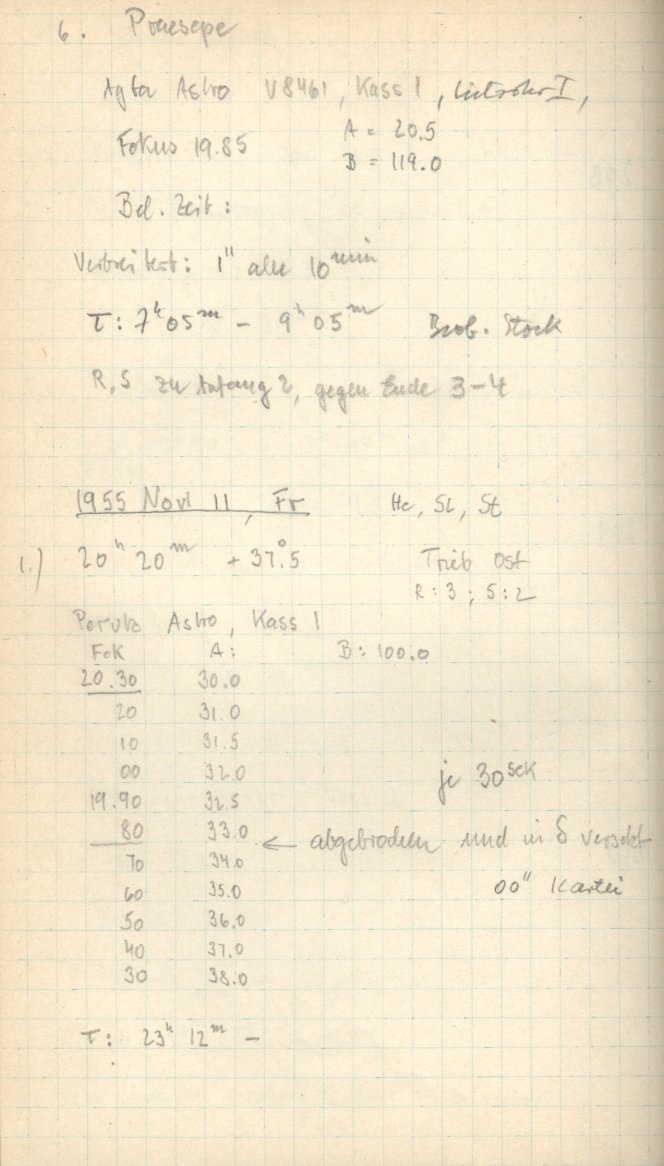 6. Praesepe
Agfa Astro V8461, Kass 1, I,
Fokus 19.85 A = 20.5
B = 119.0
Bel. Zeit:
Verbreitert: 1" alle 10 min
τ: 7h 05m - 9h 05m Beob. Stock
R, S zu Anfang 2, gegen Ende 3-4
1955 Nov 11, Fr He, SL, St
1.) 20h 20m +37°.5 Trieb Ost
R: 3 ; S: 2
Perutz Astro, Kass 1
Fok A: B: 100.0
20.30 30.0
20 31.0
10 31.5
00 32.0 je 30 sek
19.90 32.5
80 33.0 ← abgebrochen und in δ versetzt
70 34.0
60 35.0 00" Kartei
50 36.0
40 37.0
30 38.0
τ: 23h 12m -